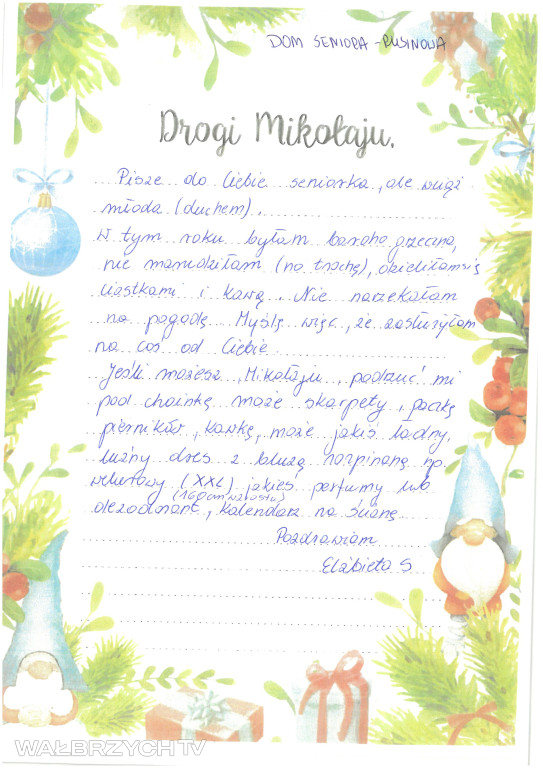 DOM SENIORA - RUSINOWA
Drogi Mikołaju,
Pisze do Ciebie seniorka, ale wciąż
młoda (duchem).
W tym roku byłam bardzo grzeczna,
nie marudziłam (no trochę), dzieliłam się
ciastkami i kawą. Nie narzekałam
na pogodę. Myślę więc, że zasłużyłam
na coś od Ciebie
Jeśli możesz, Mikołaju, podrzuć mi
pod choinkę może skarpety, paczkę
pierników, kawkę, może jakiś ładny,
luźny dres z bluzą rozpinaną np.
welurowy (XXL) jakieś perfumy lub
(160 cm wzrostu)
dezodorant, kalendarz na ścianę
Pozdrawiam
Elżbieta S
WAŁBRZYCH TV